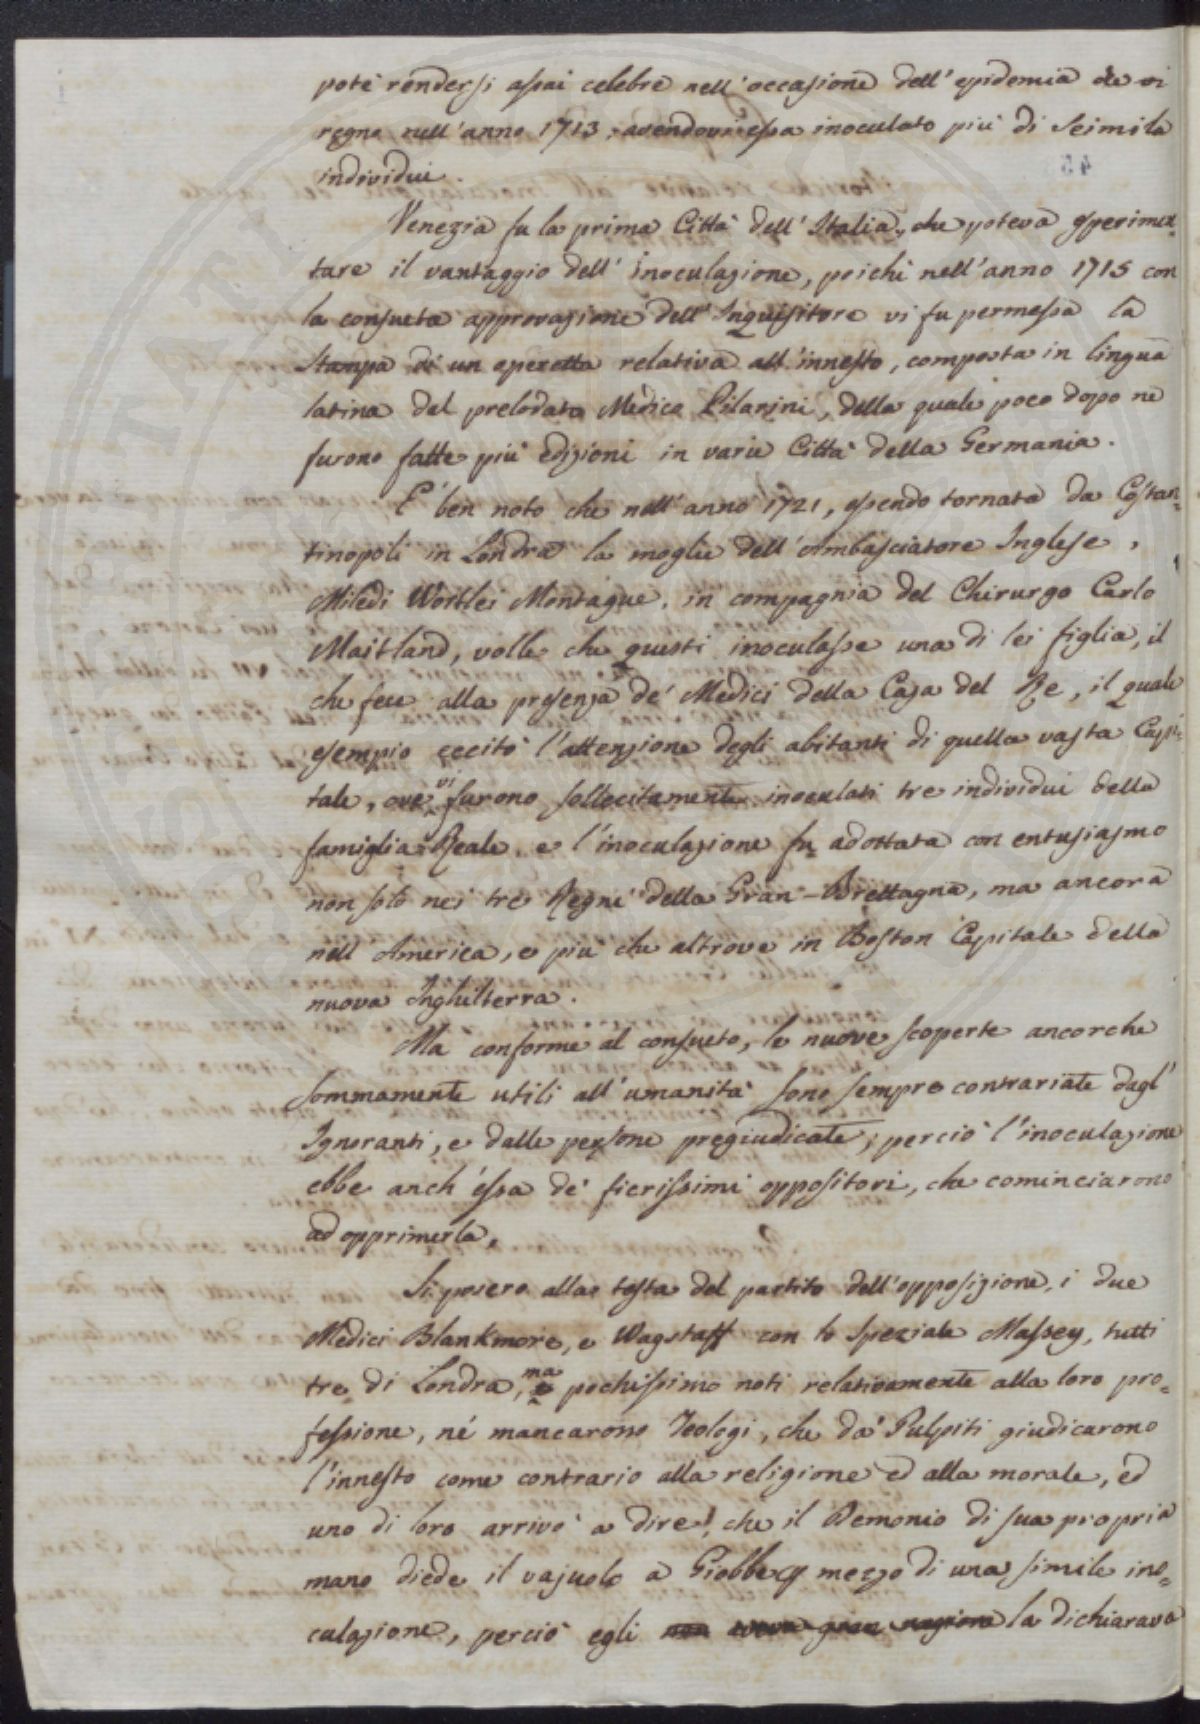 poté rendersi assai celebre nell'occasione dell'epidemia che vi
regnò nell'anno 1713, avendovi essa inoculato più di Seimila
individui.
Venezia fu la prima Città dell'Italia, che poteva esperimen=
tare il vantaggio dell'inoculazione, poichè nell'anno 1715 con
la consueta approvazione dell'Inquisitore vi fu permessa la
Stampa di un operetta relativa all'innesto, composta in lingua
latina dal prelodato Medico Pilarini, della quale poco dopo ne
furono fatte più edizioni in varie Città della Germania.
E' ben noto che nell'anno 1721, essendo tornata da Costan=
tinopoli in Londra la moglie dell'Ambasciatore Inglese,
Miledi Wortlei Montague, in compagnia del Chirurgo Carlo
Maitland, volle che questi inoculasse una di lei figlia, il
che fece alla presenza de' Medici della Casa del Re, il quale
esempio eccitò l'attenzione degli abitanti di quella vasta Capi=
tale, ove vi furono sollecitamente inoculati tre individui della
famiglia Reale, e l'inoculazione fu adottata con entusiasmo
non solo nei tre Regni della Gran-Brettagna, ma ancora
nell America, e più che altrove in Boston Capitale della
nuova Inghilterra.
Ma conforme al consueto, le nuove scoperte ancorche
sommamente utili all'umanità sono sempre contrariate dagl'
Ignoranti, e dalle persone pregiudicate; perciò l'inoculazione
ebbe anch'essa de' fierissimi oppositori, che cominciarono
ad opprimerla.
Si posero alla testa del partito dell'opposizione, i due
Medici Blankmore, e Wagstaff con lo Speziale Massey, tutti
tre di Londra, ma pochissimo noti relativamente alla loro pro=
fessione, né mancarono Teologi, che da' Pulpiti giudicarono
l'innesto come contrario alla religione ed alla morale, ed
uno di loro arrivò a dire, che il Demonio di sua propria
mano diede il vajuolo a Giobbe p mezzo di una simile ino=
culazione, perciò egli non aveva gran ragione la dichiarava